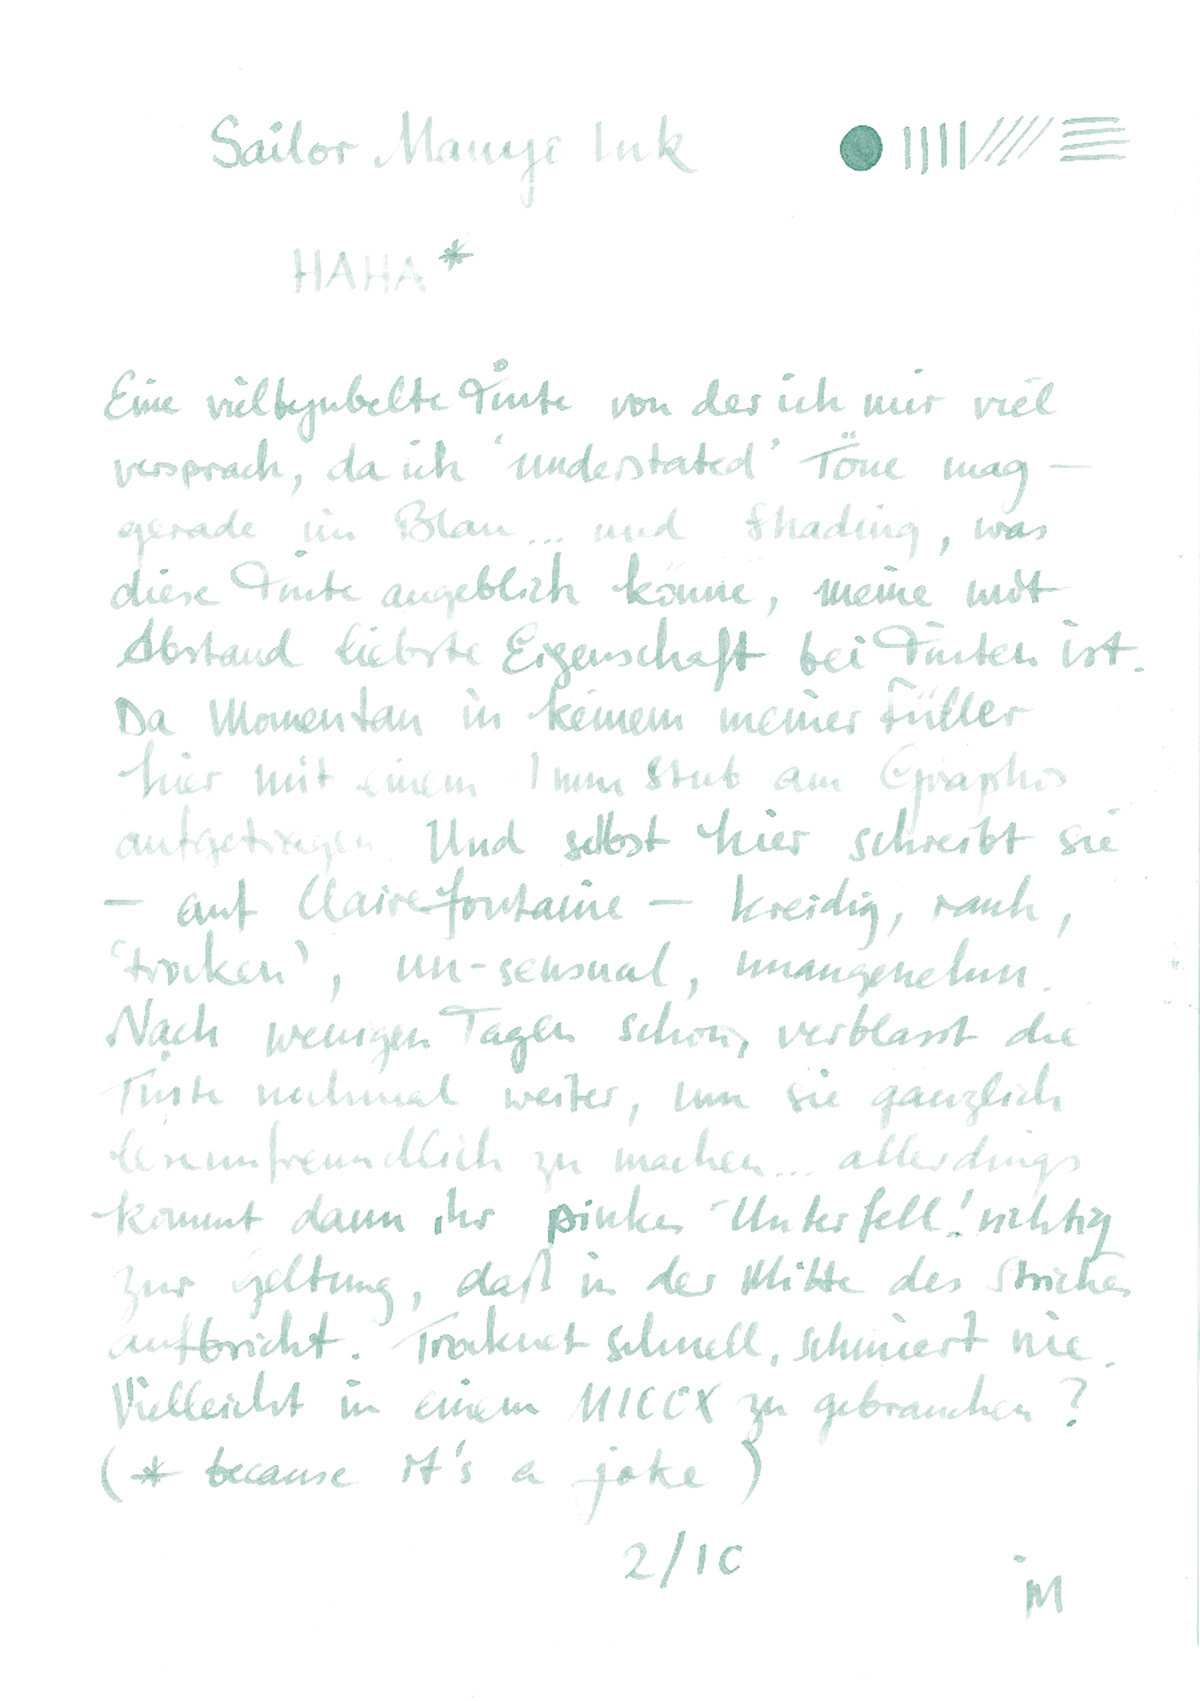 Sailor Manyo Ink
HAHA*
Eine vielbejubelte Tinte von der ich mir viel
versprach, da ich 'understated' Töne mag –
gerade im Blau... und Shading, was
diese Tinte angeblich könne, meine mit
Abstand liebste Eigenschaft bei Tinten ist.
Da Momentan in keinem meiner Füller
hier mit einem 1mm Stub am Graphos
aufgetragen. Und selbst hier schreibt sie
– auf Clairefontaine – kreidig, rauh,
'trocken', un-sensual, unangenehm.
Nach wenigen Tagen schon, verblasst die
Tinte nochmal weiter, um sie gänzlich
leseunfreundlich zu machen... allerdings
kommt dann ihr pinkes 'Unterfell' richtig
zur Geltung, daß in der Mitte des Striches
aufbricht. Trocknet schnell, schmiert nie.
Vielleicht in einem zu gebrauchen?
(* because it's a joke)
2/10
M